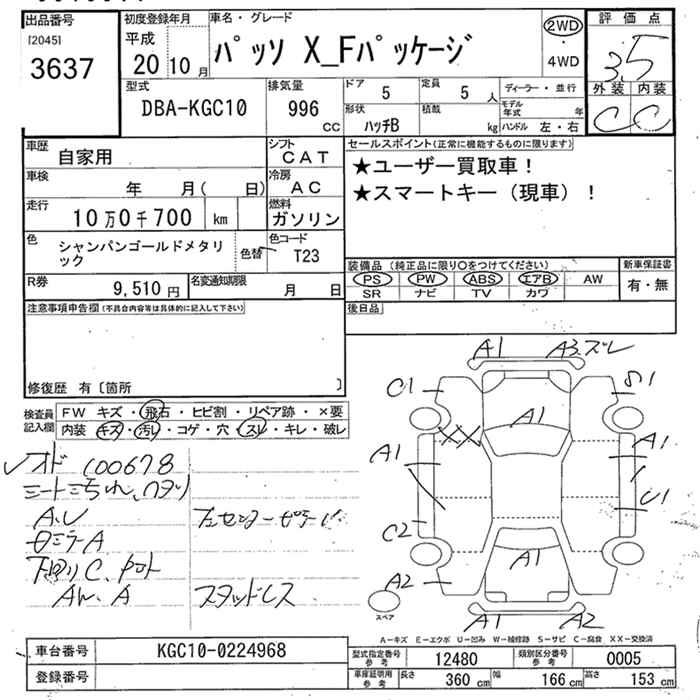 出品番号
[2045]
3637
初度登録年月
平成
20 10 月
車名・グレード
パッソ X_Fパッケージ
2WD
・
4WD
評価点
3.5
外装 内装
C C
型式
DBA-KGC10
排気量
996
CC
ドア
5
定員
5 人
形状
ハッチB
積載
kg
ディーラー・並行
モデル年式 年
ハンドル 左・右
車歴
自家用
シフト
CAT
車検
年 月( 日)
冷房
AC
走行
10万0千700 km
燃料
ガソリン
色
シャンパンゴールドメタリ
ック
色替
色コード
T23
R券
9,510 円
名変通知期限
月 日
セールスポイント(正常に機能するものに限ります)
★ユーザー買取車!
★スマートキー(現車)!
装備品(純正品に限り○をつけてください)
新車保証書
PS PW ABS エアB AW
SR ナビ TV カワ
有・無
後日品
注意事項申告欄(不具合内容等は具体的に記入して下さい)
修復歴 有〔箇所 〕
検査員
記入欄
FW キズ・飛石・ヒビ割・リペア跡・×要
内装 キズ・汚レ・コゲ・穴・スレ・キレ・破レ
オド 100678
A.U
スタッドレス
AW.A
A1 A3.ズレ
A1
XX
A1
A1
U1
C2
A1
A2
スペア
A1 A2
A-キズ E-エクボ U-凹み W-補修跡 S-サビ C-腐食 XX-交換済
車台番号
KGC10-0224968
登録番号
型式指定番号
参考
12480
類別区分番号
参考
0005
車庫証明用
参考
長さ 360 cm
幅 166 cm
高さ 153 cm